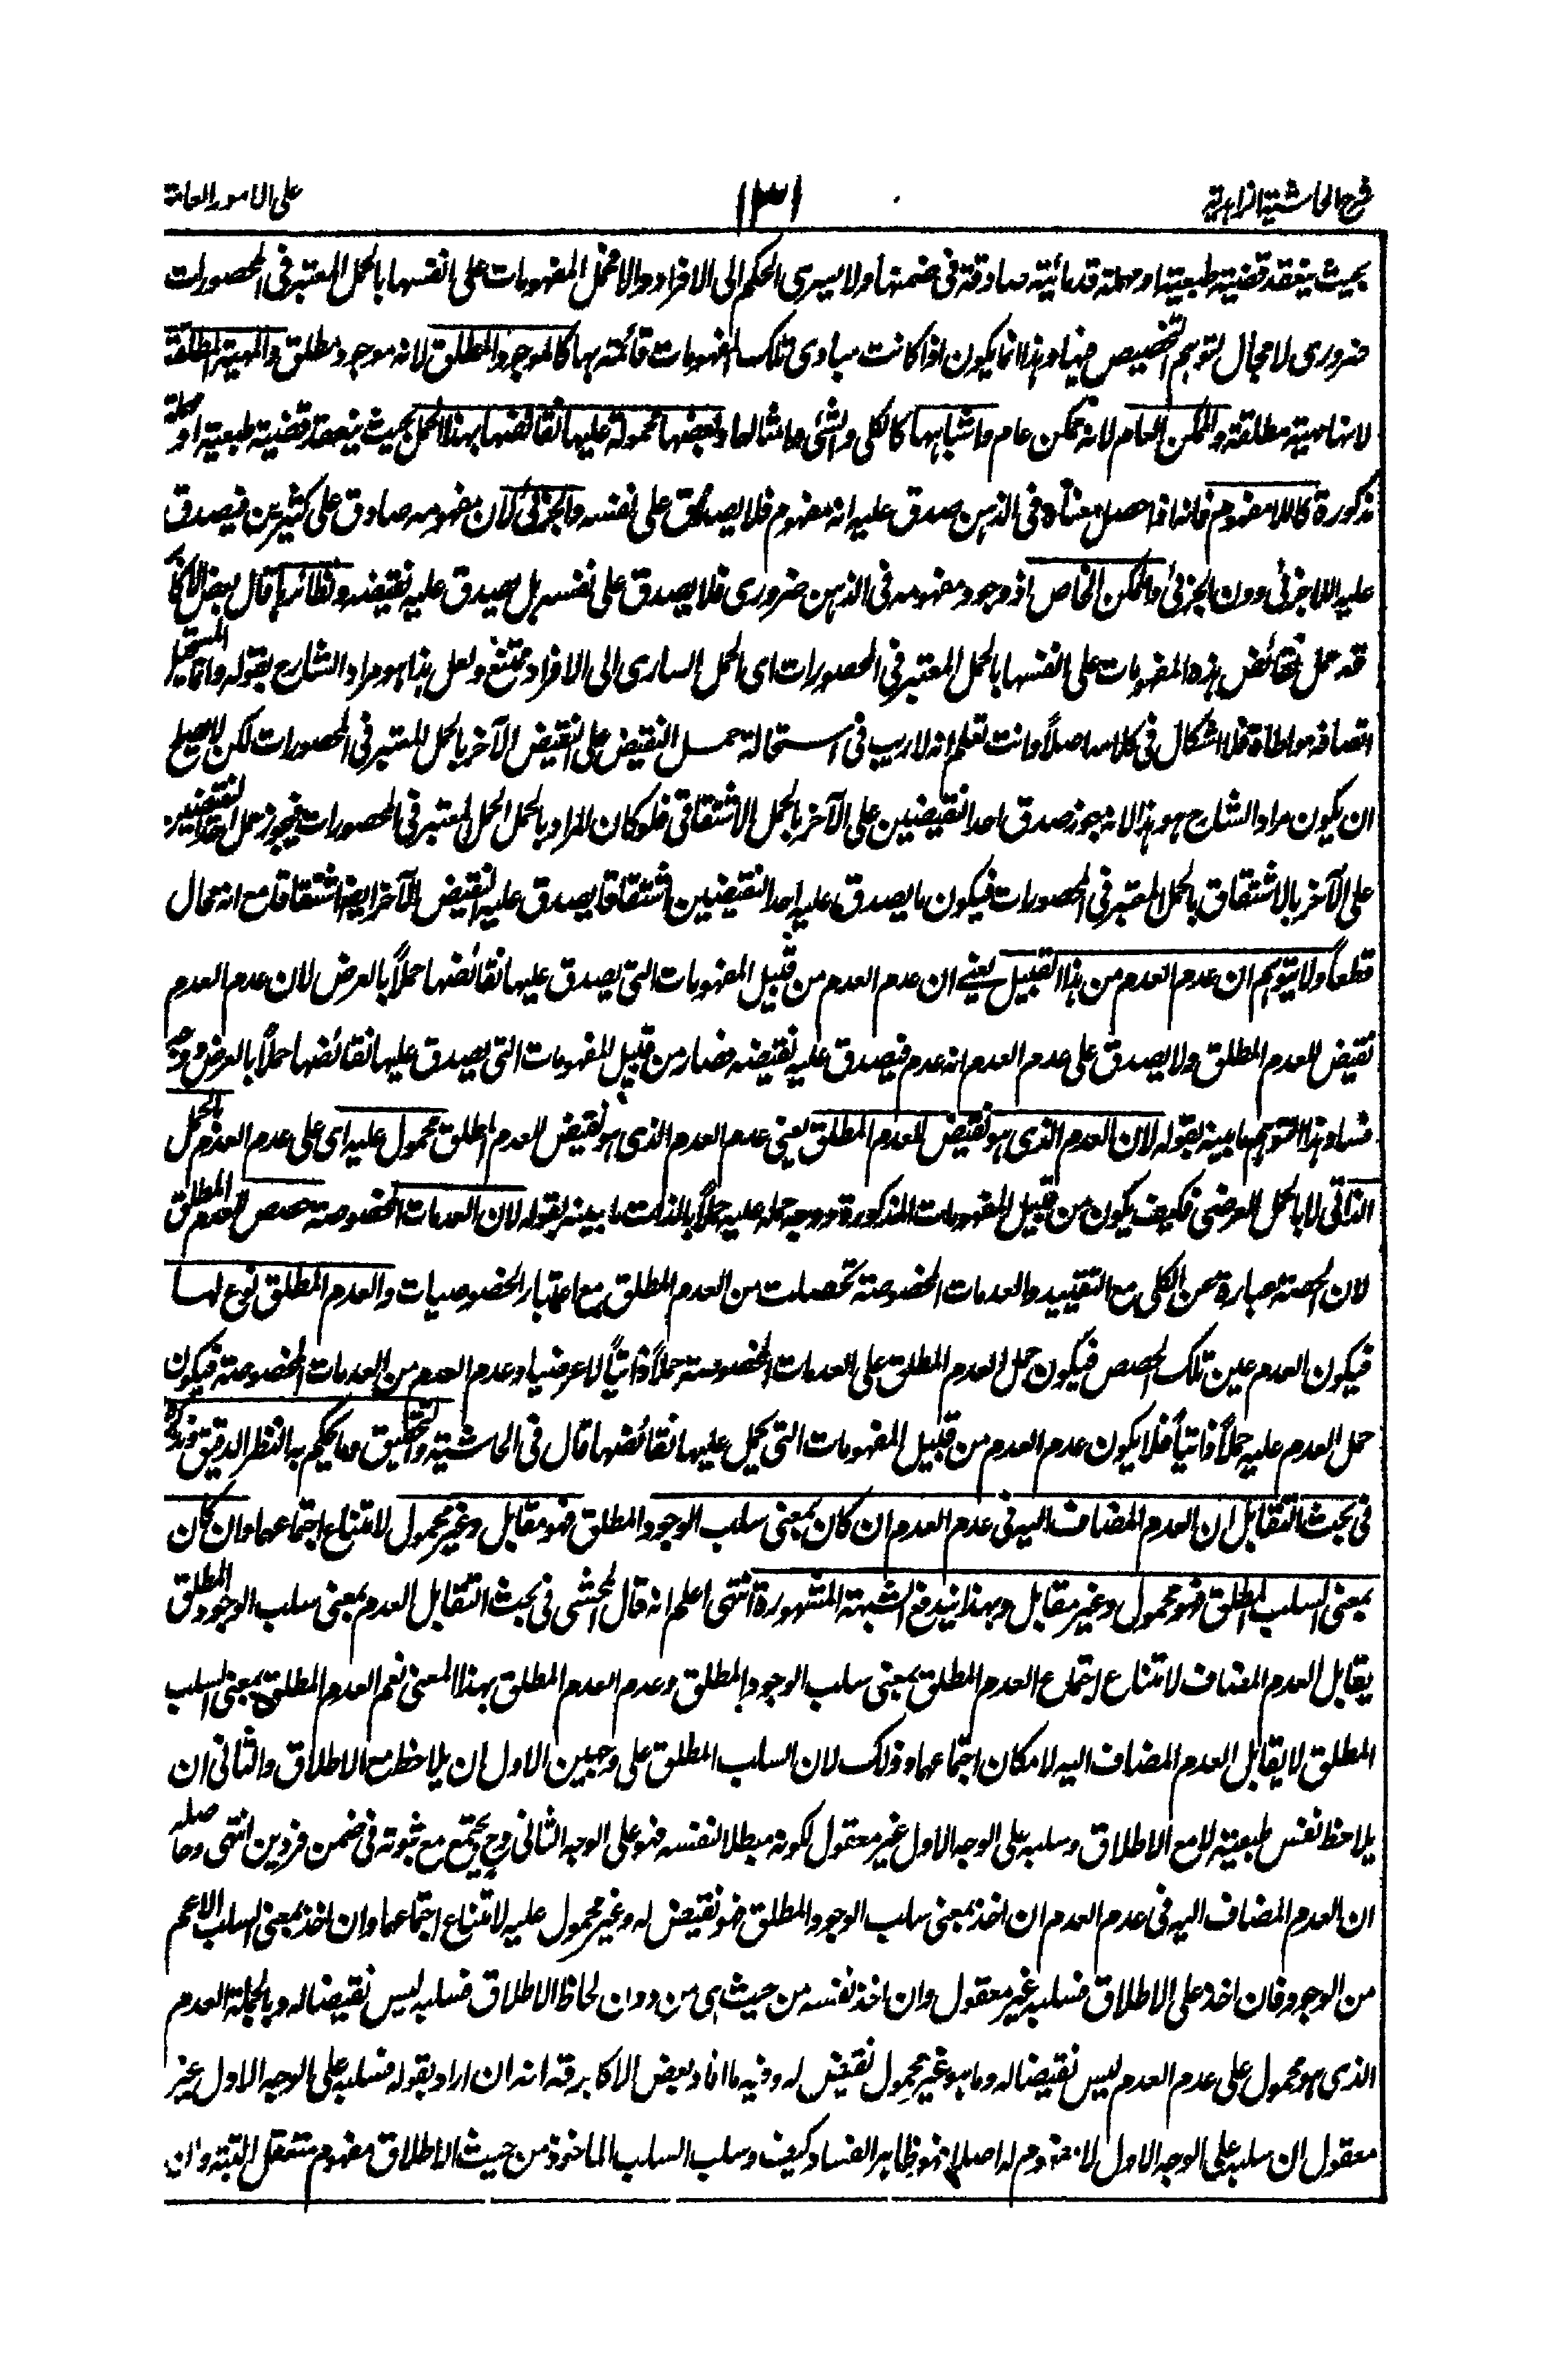 شرح الحاشية الزاهدية ١٣١ على الامور العامة
بحيث ينعقد قضية طبعية او مهملة قدمائية صادقة فى ضمنها ولا يسرى الحكم الى الافراد والا فحمل المفهومات على انفسها بالحمل المعتبر فى المحصورات
ضرورى لا مجال لتوهم التخصيص فيها وهذا انما يكون اذا كانت مبادى تلك المفهومات قائمة بها كالموجود المطلق لانه موجود مطلق والمهية المطلقة
لانها مهية مطلقة والممكن العام لانه ممكن عام واشباهها كالكلى والشئ وامثالها وبعضها محمولة عليها نقائضها بهذا الحمل بحيث ينعقد قضية طبعية او مهملة
مذكورة كاللا مفهوم فانه اذا حصل معناه فى الذهن صدق عليه انه مفهوم فلا يصدق على نفسه والجزئى لان مفهومه صادق على كثيرين فيصدق
عليه اللا جزئى دون الجزئى والممكن الخاص اذ وجود مفهومه فى الذهن ضرورى فلا يصدق على نفسه بل يصدق عليه نقيضه ونظائرها قال بعض الاكابر
قده حمل نقائض هذه المفهومات على انفسها بالحمل المعتبر فى المحصورات اى الحمل السارى الى الافراد ممتنع ولعل هذا هو مراد الشارح بقوله وانما يستحيل
اتصافه مواطاة فلا اشكال فى كلامه اصلاً وانت تعلم انه لا ريب فى استحالة حمل النقيض على النقيض الآخر بالحمل المعتبر فى المحصورات لكن لا يصلح
ان يكون مراد الشارح هو هذا لانه جوز صدق احد النقيضين على الآخر بالحمل الاشتقاقى فلو كان المراد بالحمل الحمل المعتبر فى المحصورات فيجوز حمل احد النقيضين
على الآخر بالاشتقاق بالحمل المعتبر فى المحصورات فيكون ما يصدق عليه احد النقيضين اشتقاقا يصدق عليه النقيض الآخر ايضا اشتقاقا مع انه محال
قطعاً ولا يتوهم ان عدم العدم من هذا القبيل يعنے ان عدم العدم من قبيل المفهومات التى يصدق عليها نقائضها حملاً بالعرض لان عدم العدم
نقيض للعدم المطلق ولا يصدق على عدم العدم انه عدم فيصدق عليه نقيضه فصار من قبيل المفهومات التى يصدق عليها نقائضها حملاً بالعرض ووجه
فساد هذا التوهم ما بينه بقوله لان العدم الذى هو نقيض للعدم المطلق يعنى عدم العدم الذى هو نقيض للعدم المطلق محمول عليه اى على عدم العدم بالحمل
الذاتى لا بالحمل العرضى فكيف يكون من قبيل المفهومات المذكورة ووجه حمله عليه حملاً بالذات ما بينه بقوله لان العدمات المخصوصة حصص للعدم المطلق
لان الحصة عبارة عن الكلى مع التقييد والعدمات المخصوصة تحصلت من العدم المطلق مع اعتبار الخصوصيات والعدم المطلق نوع لها
فيكون العدم عين تلك الحصص فيكون حمل العدم المطلق على العدمات المخصوصة حملاً ذاتياً لا عرضيا وعدم العدم من العدمات المخصوصة فيكون
حمل العدم عليه حملاً ذاتياً فلا يكون عدم العدم من قبيل المفهومات التى يحمل عليها نقائضها قال فى الحاشية والتحقيق وما يحكم به النظر الدقيق
فى بحث التقابل ان العدم المضاف اليه فى عدم العدم ان كان بمعنى سلب الوجود المطلق فهو مقابل وغير محمول لامتناع اجتماعهما وان كان
بمعنى السلب المطلق فهو محمول وغير مقابل وبهذا يندفع الشبهة المشهورة انتهى اعلم انه قال المحشى فى بحث التقابل العدم بمعنى سلب الوجود المطلق
يقابل العدم المضاف لامتناع اجتماع العدم المطلق بمعنى سلب الوجود المطلق وعدم العدم المطلق بهذا المعنى نعم العدم المطلق بمعنى السلب
المطلق لا يقابل العدم المضاف اليه لامكان اجتماعهما وذلك لان السلب المطلق على وجهين الاول ان يلاحظ مع الاطلاق والثانى ان
يلاحظ نفس طبعية لا مع الاطلاق وسلبه على الوجه الاول غير معقول لكونه مبطلا لنفسه فهو على الوجه الثانى وح يجتمع مع ثبوته فى ضمن فردين انتهى وحاصله
ان العدم المضاف اليه فى عدم العدم ان اخذ بمعنى سلب الوجود المطلق فهو نقيض له وغير محمول عليه لامتناع اجتماعهما وان اخذ بمعنى السلب الاعم
من الوجود فان اخذ على الاطلاق فسلبه غير معقول وان اخذ نفسه من حيث هى من دون لحاظ الاطلاق فسلبه ليس نقيضا له وبالجملة العدم
الذى هو محمول على عدم العدم ليس نقيضا له وما هو غير محمول نقيض له وفيه ما افاد بعض الاكابر قده انه ان اراد بقوله فسلبه على الوجه الاول غير
معقول ان سلبه على الوجه الاول لا مفهوم له اصلا فهو ظاهر الفساد كيف وسلب السلب الماخوذ من حيث الاطلاق مفهوم متعقل البتة وان